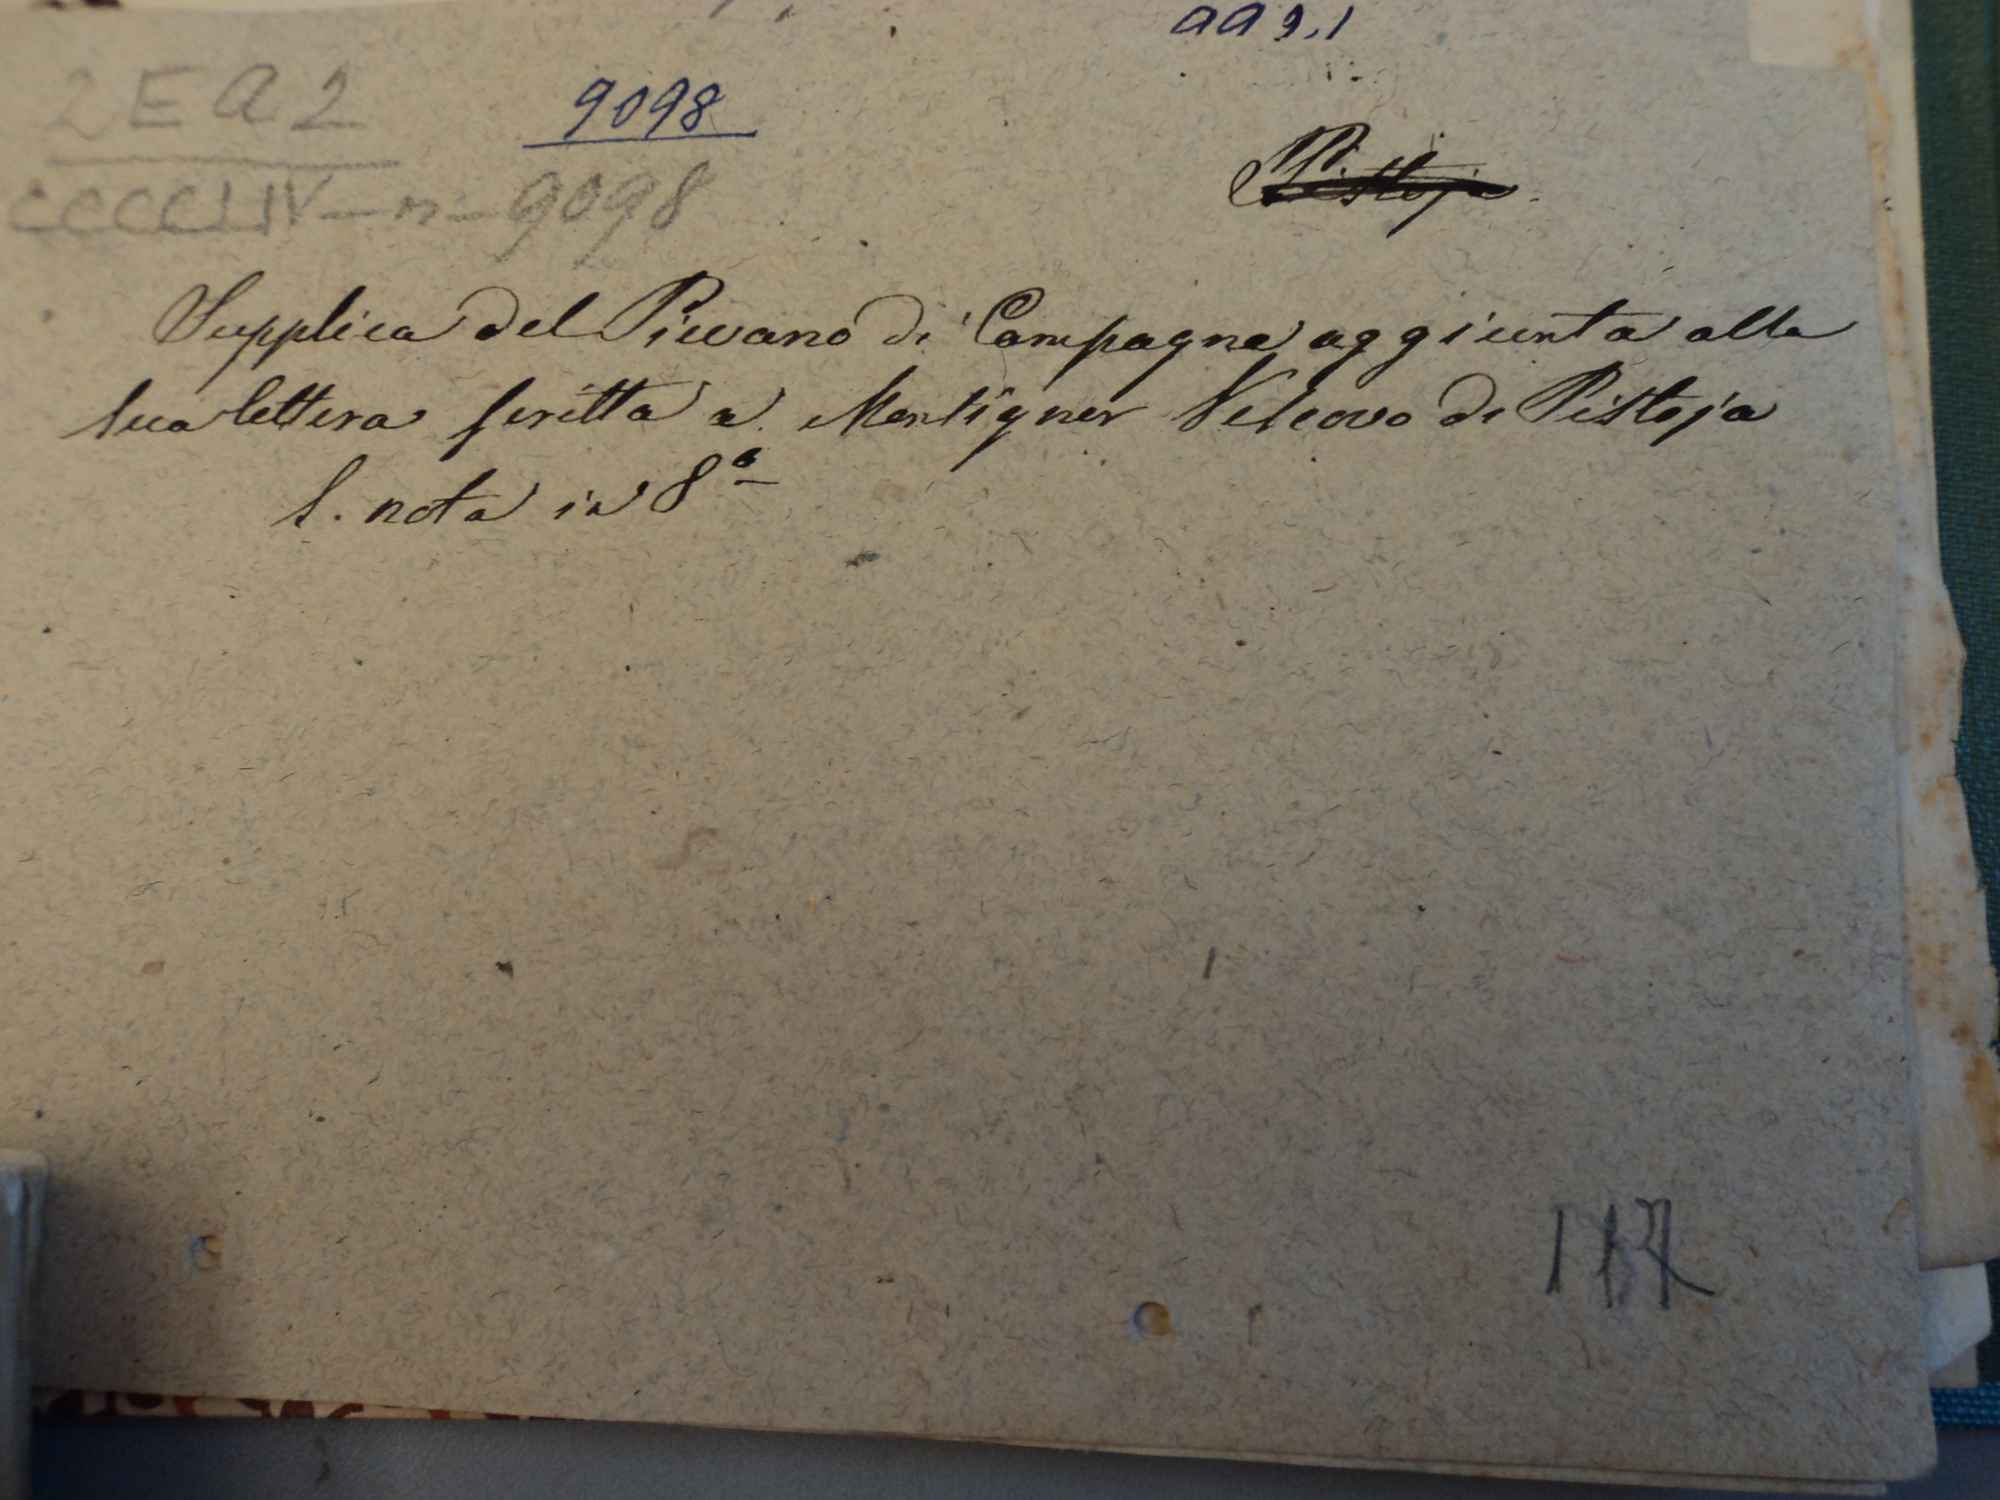 aa 9.1
2 E a 2
9098
CCCCLIV - n - 9098
Pistoja
Supplica del Pievano di Campagna aggiunta alla
sua lettera scritta a Monsignor Vescovo di Pistoja
s. nota in 8º